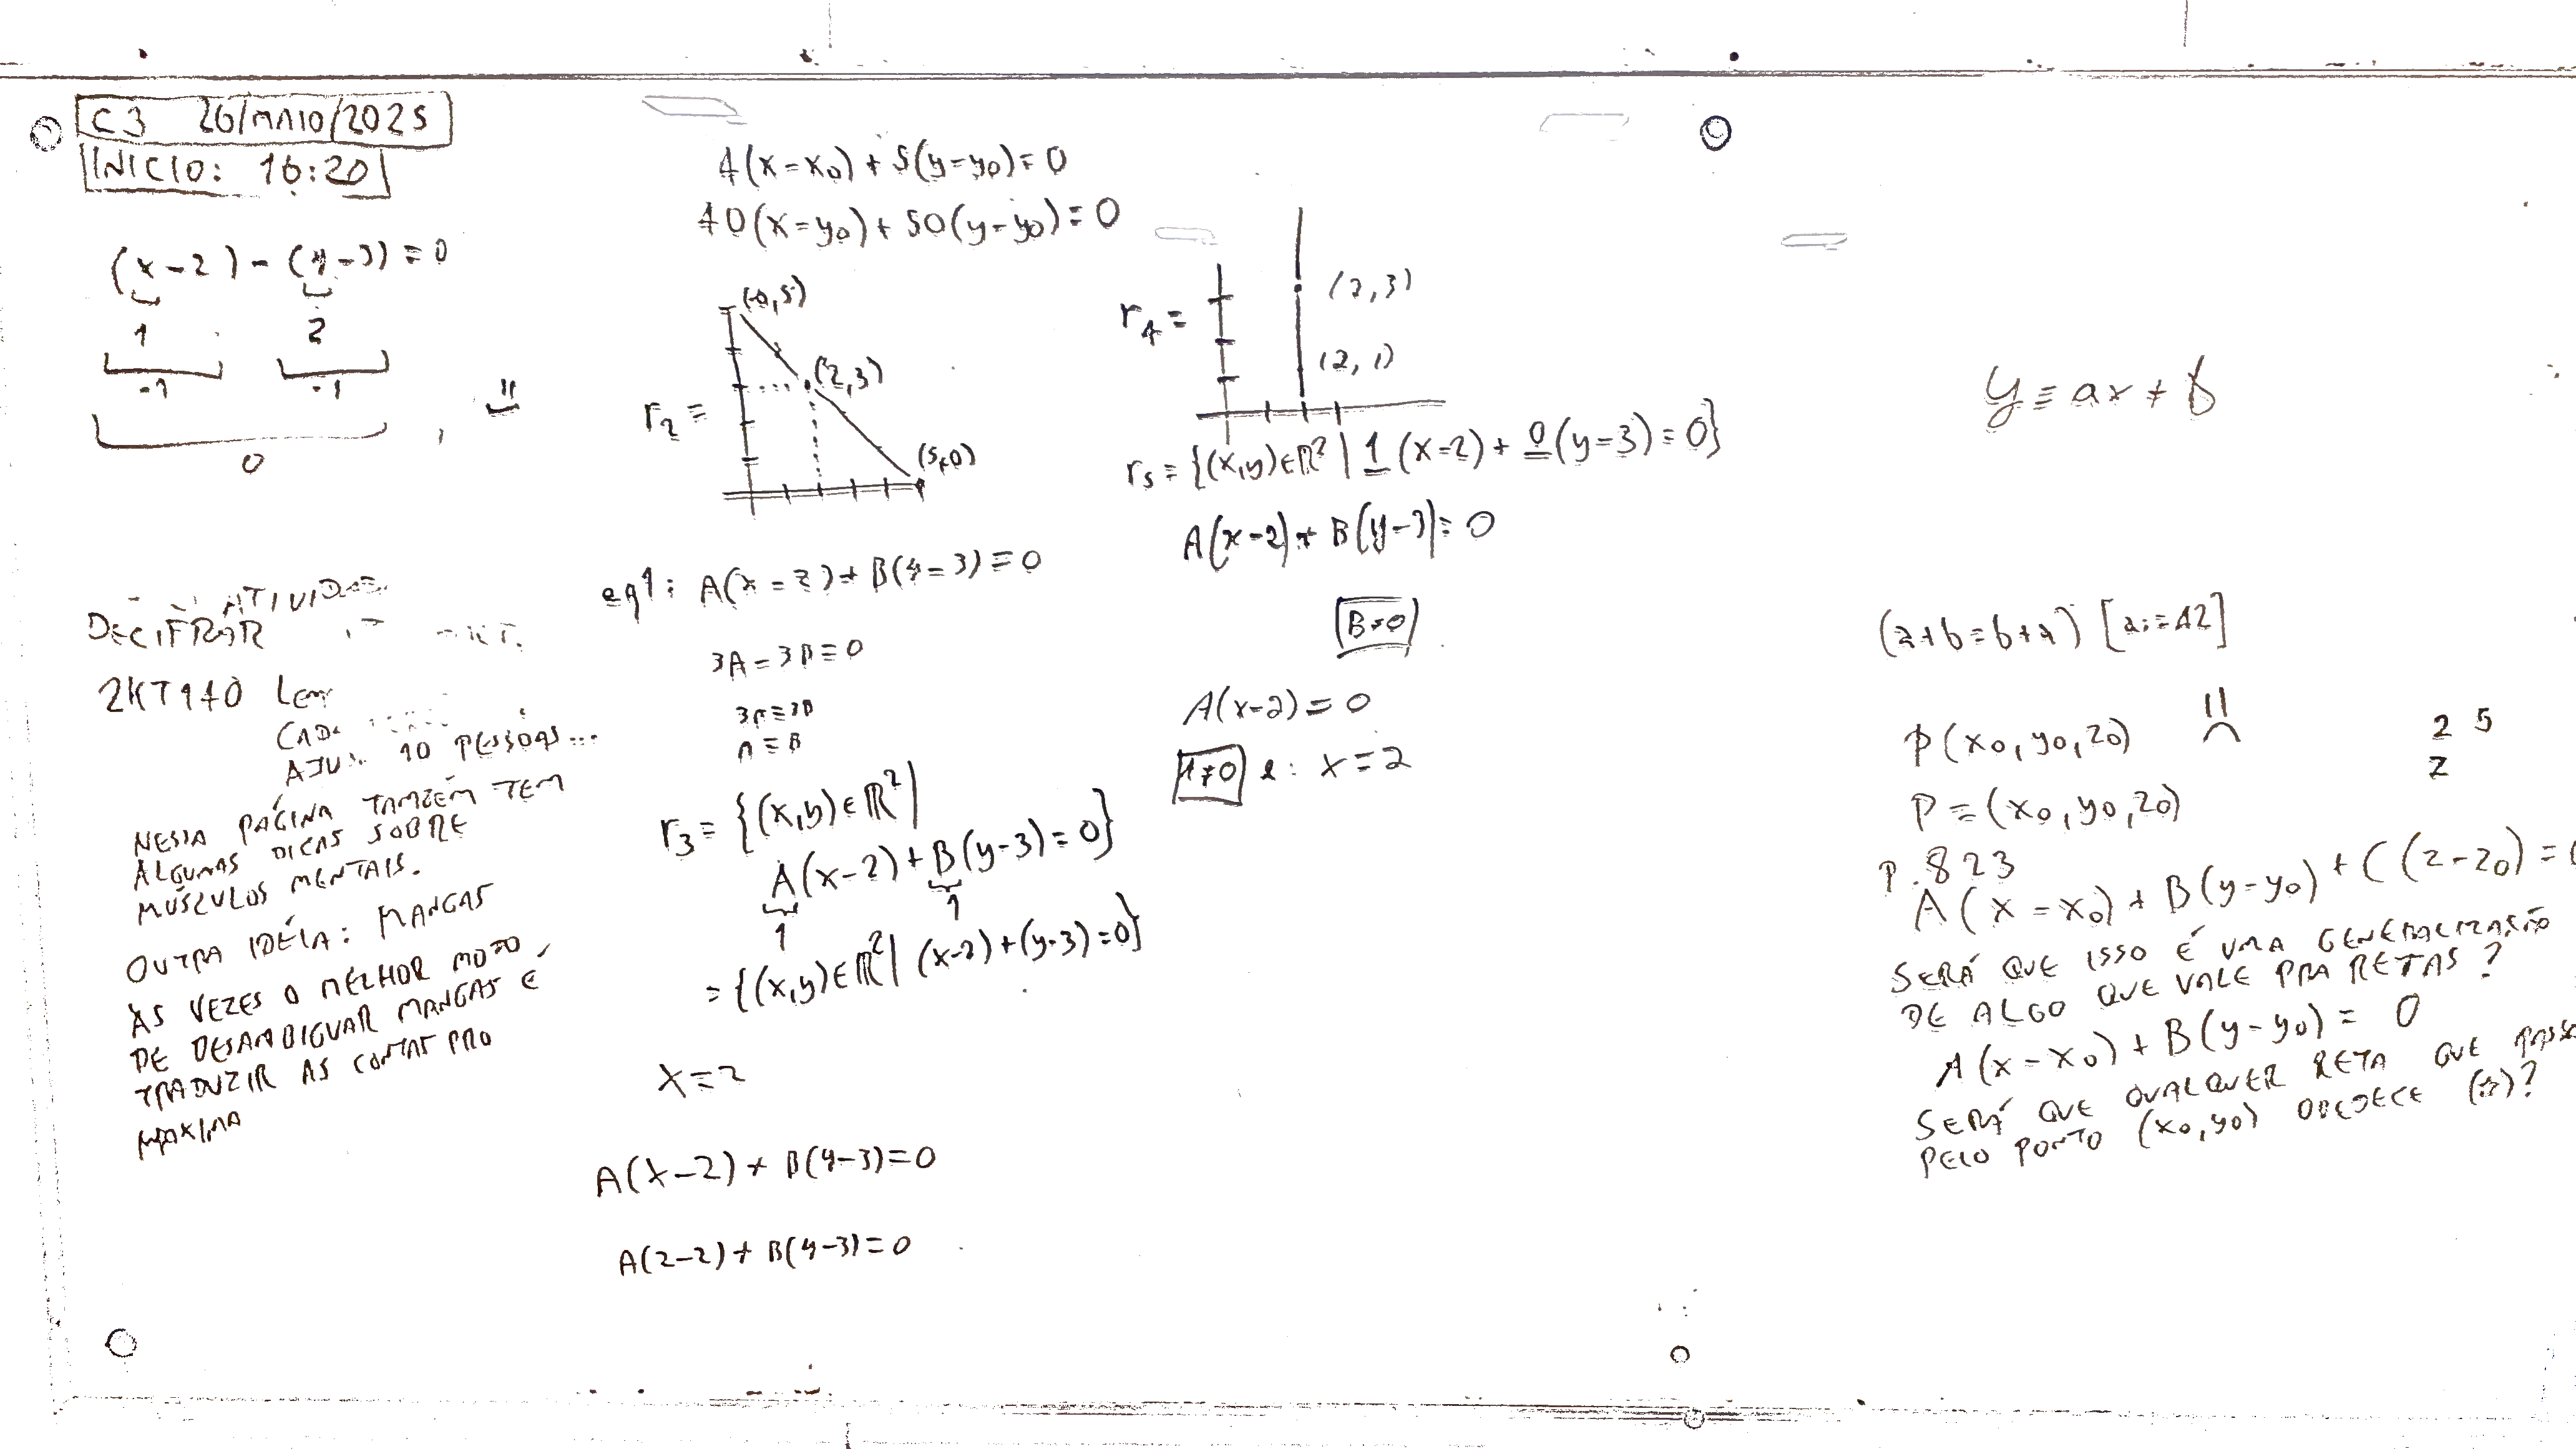 C3 26/MAIO/2025
INICIO: 16:20
(x-2)-(y-3)=0
1 2
-1 -1
0
ATIVIDADE
DECIFRAR
2KT140
CAD
10 PESSOAS...
NESSA PÁGINA TAMBÉM TEM
ALGUMAS DICAS SOBRE
MÚSCULOS MENTAIS.
OUTRA IDÉIA: MANGAS
ÀS VEZES O MELHOR MODO
DE DESAMBIGUAR MANGAS É
TRADUZIR AS CONTAS PRO
MAXIMA
4(x-x0)+5(y-y0)=0
40(x-y0)+50(y-y0)=0
r2=
(0,5)
(2,3)
(5,0)
eq1: A(x-2)+B(y-3)=0
3A-3B=0
3A=3B
A=B
r3={(x,y)∈ℝ²|
A(x-2)+B(y-3)=0}
1 1
={(x,y)∈ℝ²| (x-2)+(y-3)=0}
x=2
A(x-2)+B(y-3)=0
A(2-2)+B(y-3)=0
r4=
(2,3)
(2,1)
r5={(x,y)∈ℝ²|1(x-2)+0(y-3)=0}
A(x-2)+B(y-3)=0
B=0
A(x-2)=0
A≠0 e: x=2
y=ax+b
(a+b=b+a) [a:=42]
P(x0,y0,z0)
2 5
z
P=(x0,y0,z0)
P.823
A(x-x0)+B(y-y0)+C(z-z0)=0
SERÁ QUE ISSO É UMA GENERALIZAÇÃO
DE ALGO QUE VALE PRA RETAS?
A(x-x0)+B(y-y0)=0
SERÁ QUE QUALQUER RETA QUE PASSE
PELO PONTO (x0,y0) OBEDECE (☆)?